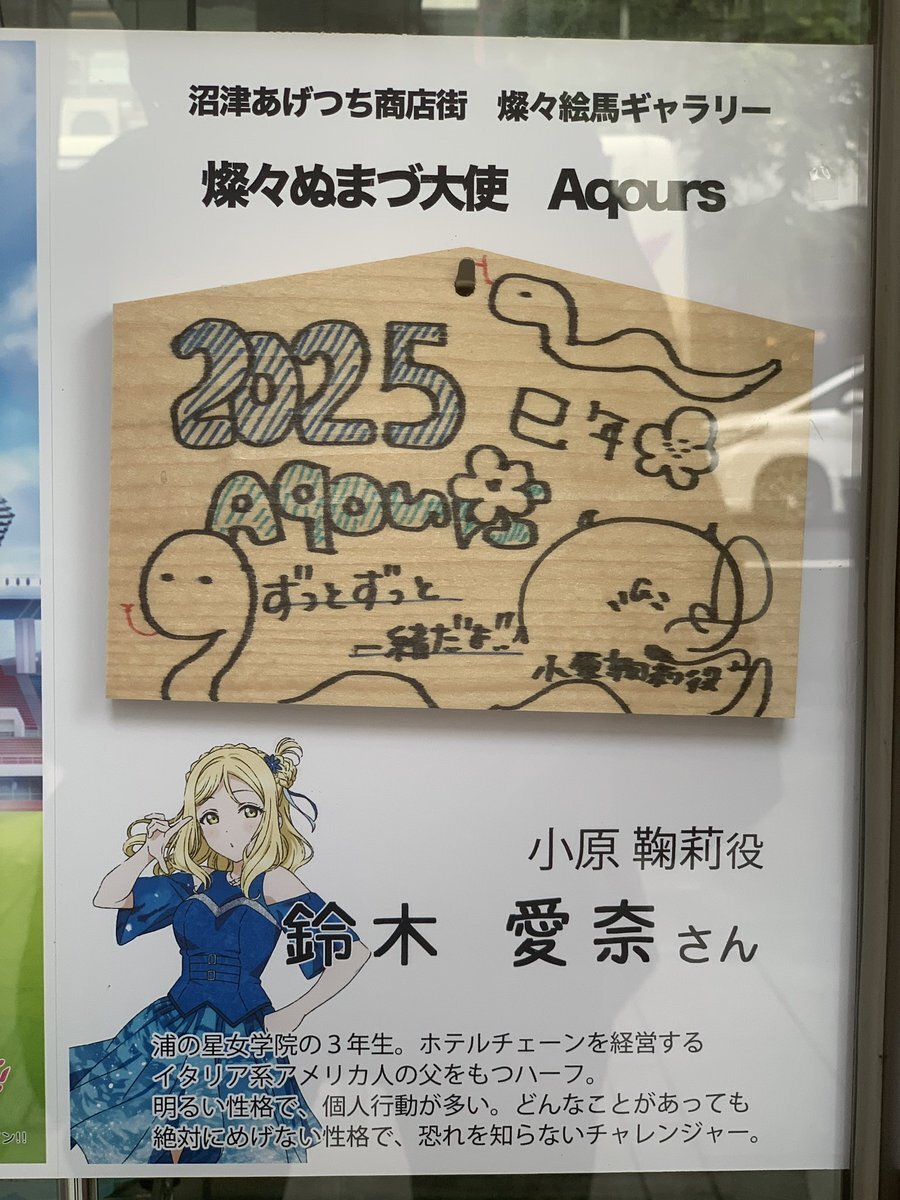 沼津あげつち商店街　燦々絵馬ギャラリー
燦々ぬまづ大使　Aqours
2025
巳年
Aqours
ずっとずっと
一緒だよ!!
小原鞠莉役
小原 鞠莉役
鈴木　愛奈さん
浦の星女学院の３年生。ホテルチェーンを経営する
イタリア系アメリカ人の父をもつハーフ。
明るい性格で、個人行動が多い。どんなことがあっても
絶対にめげない性格で、恐れを知らないチャレンジャー。
ン!!